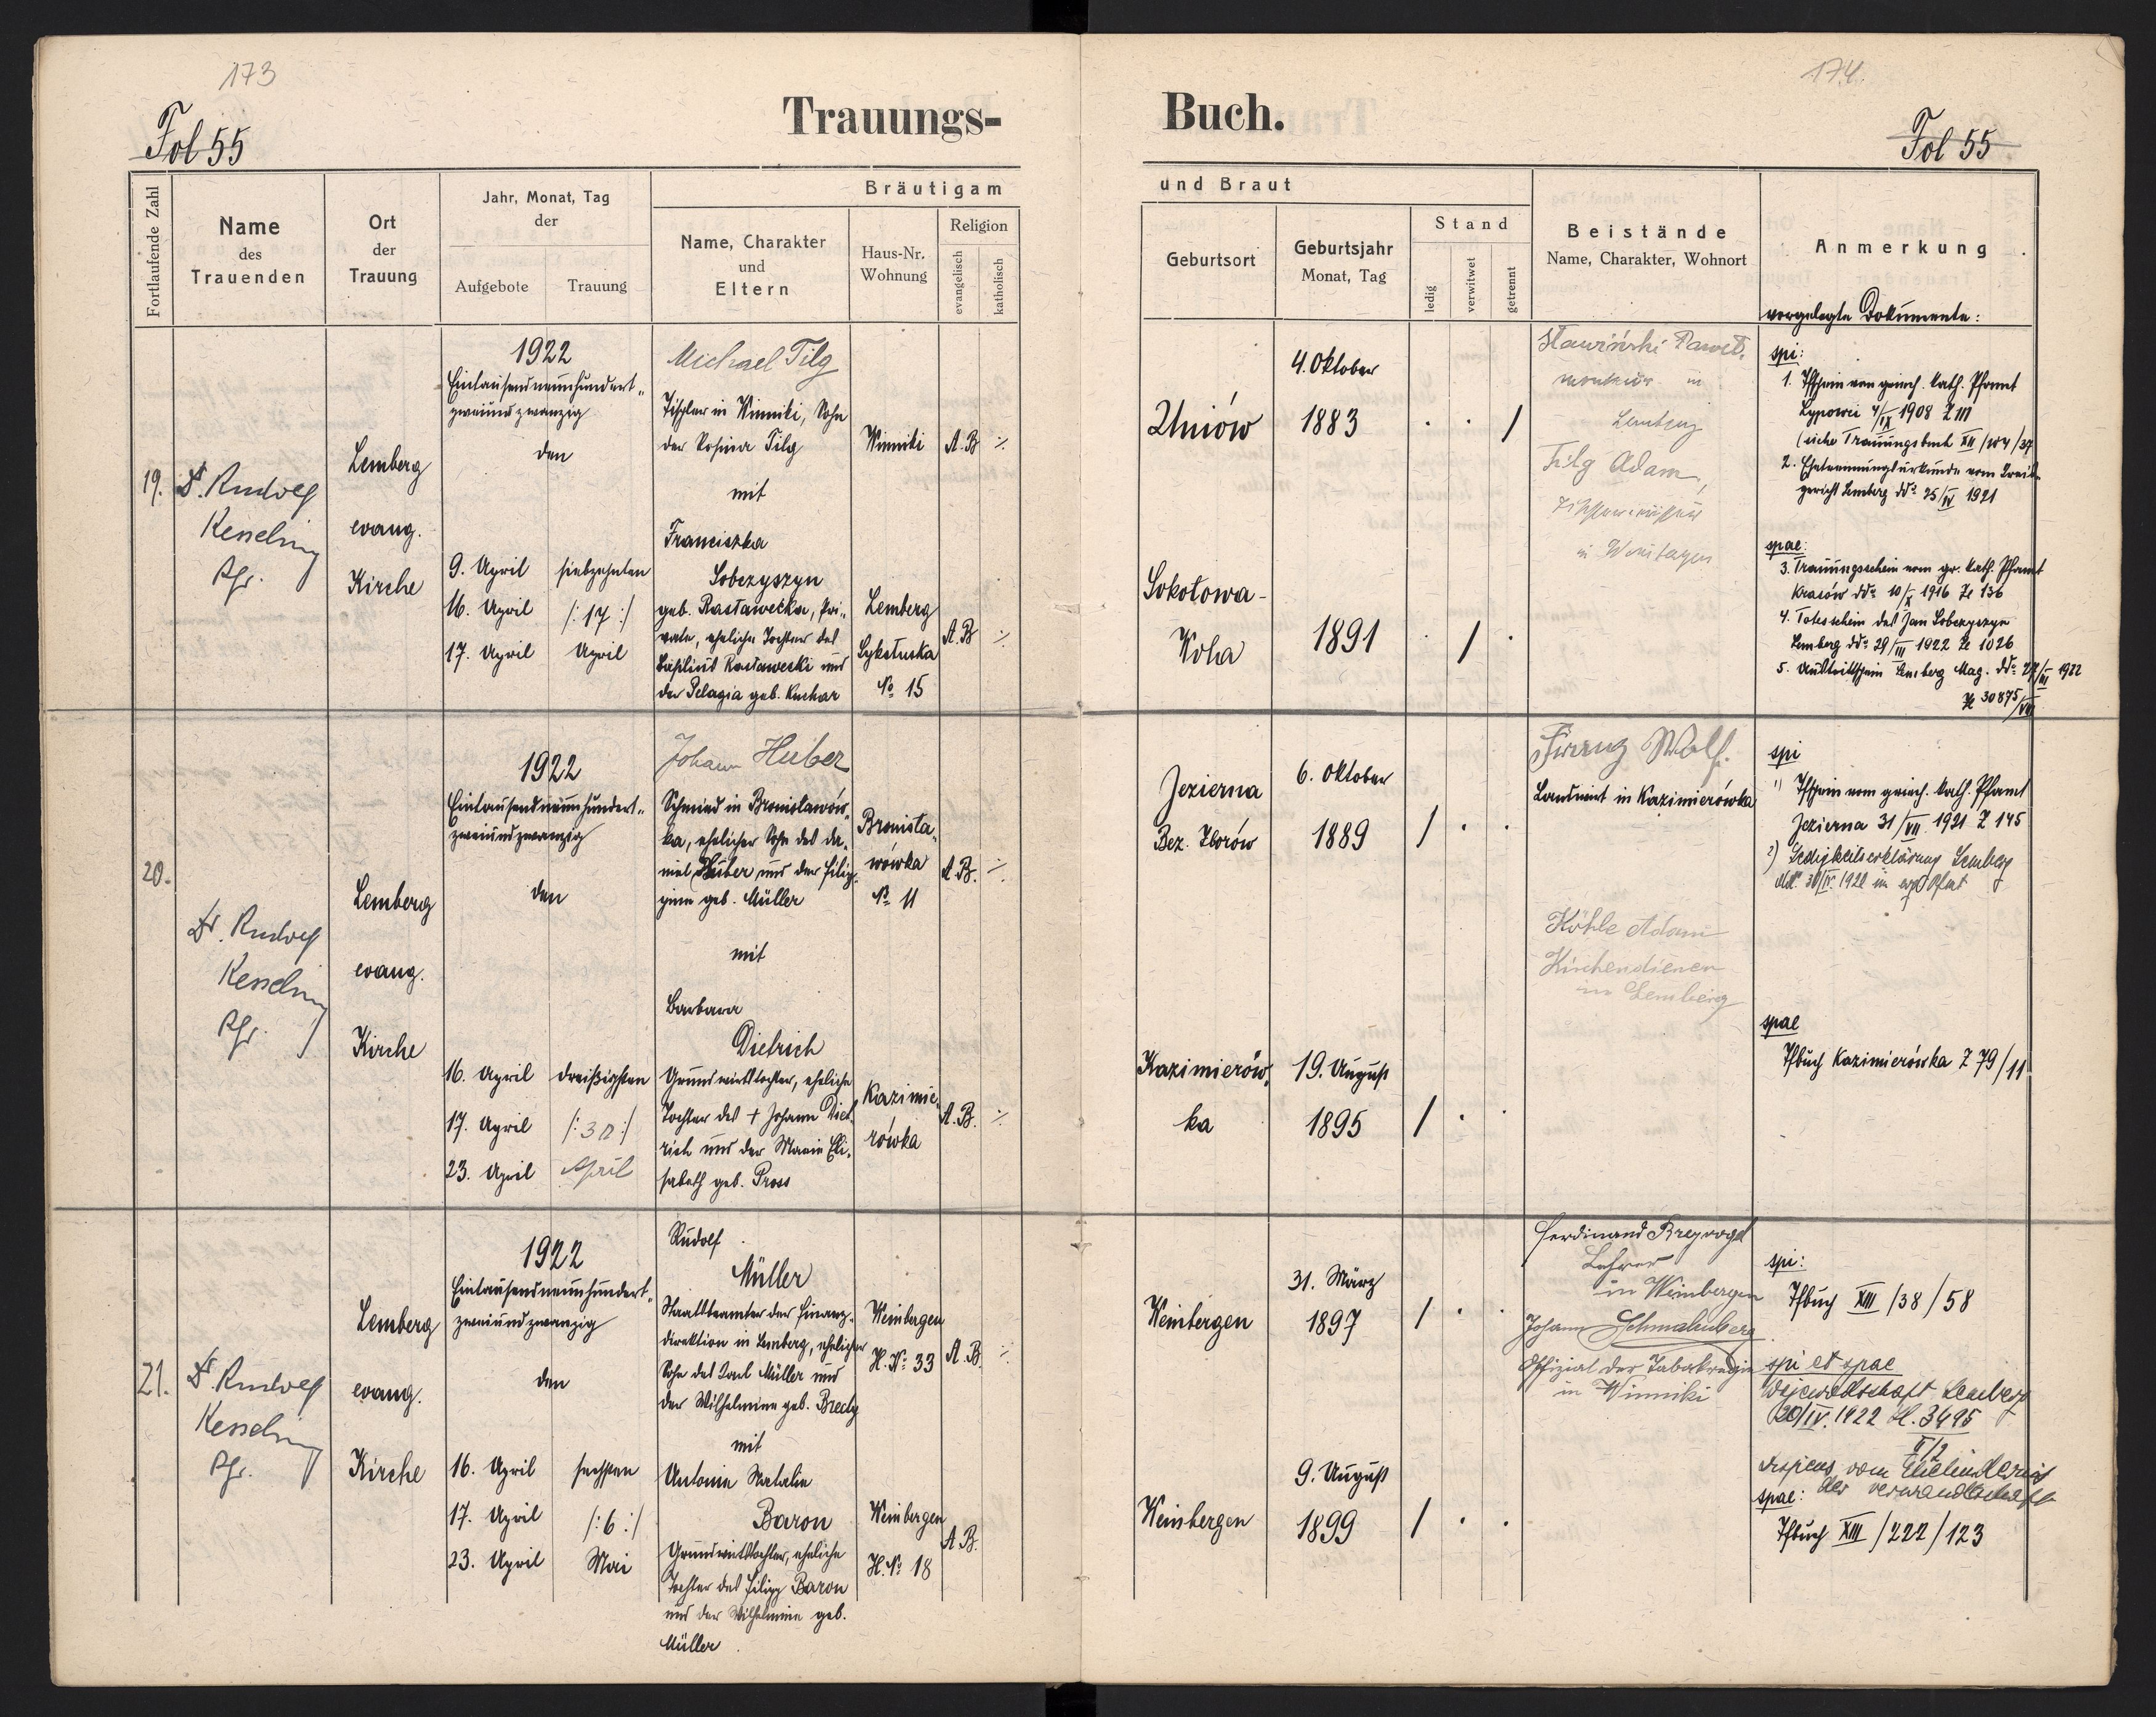 173
174.
Trauungs-
Buch.
Fol 55
Fol 55
Fortlaufende Zahl
Name
des
Trauenden
Ort
der
Trauung
Jahr, Monat, Tag
der
Aufgebote
Trauung
Bräutigam
Name, Charakter
und
Eltern
Haus-Nr.
Wohnung
Religion
evangelisch
katholisch
und Braut
Geburtsort
Geburtsjahr
Monat, Tag
Stand
ledig
verwitwet
getrennt
Beistände
Name, Charakter, Wohnort
Anmerkung
vorgelegte Dokumente:
19.
Dr. Rudolf
Kesselring
Pfr.
Lemberg
evang.
Kirche
1922
Eintausendneunhundert-
zweiundzwanzig
den
9. April
16. April
17. April
siebzehnten
/:17:/
April
Michael Tilg
Tischler in Winniki, Sohn
der Rosina Tilg
mit
Franciszka
Sobczyszyn
geb. Rastawecka, Pri-
vate, eheliche Tochter des
Basilius Rastawecki und
der Pelagia geb. Kuchar
Winniki
A.B.
Lemberg
Sykstuska
No 15
A.B.
Uniów
4. Oktober
1883
Sokołowa-
Wola
1891
Sławiński Paweł,
in
Lemberg
Tilg Adam,
in Weinbergen
spi:
1. Tfschein vom griech. kath. Pfarramt
4/IX 1908 Z 111
(siehe Trauungsbuch XII/104/37
2. Ehetrennungsurkunde vom Kreis-
gericht Lemberg ddo 25/IV 1921
spae:
3. Trauungsschein vom gr. kath. Pframt
Krasów ddo 10/X 1916 Zl 136
4. Totesschein des Jan Sobczyszyn
Lemberg ddo 29/III 1922 Zl 1026
5. Austrittschein Lemberg Mag. ddo 27/III 1922
Zl 30875/VII
20.
Dr. Rudolf
Kesselring
Pfr.
Lemberg
evang.
Kirche
1922
Eintausendneunhundert-
zweiundzwanzig
den
16. April
17. April
23. April
dreißigsten
/:30:/
April
Johann Huber
Schmied in Bronisławów-
ka, ehelicher Sohn des Da-
niel Huber und der Filip-
pine geb. Müller
mit
Barbara
Dietrich
Grundwirtstochter, eheliche
Tochter des + Johann Diet-
rich und der Maria Eli-
sabeth geb. Pross
Bronisła-
wówka
No 11
A.B.
Kazimie-
rówka
A.B.
Jezierna
Bez. Zborów
6. Oktober
1889
Kazimierów-
ka
19. August
1895
Franz Wolf.
Landwirt in Kazimierówka
Köhle Adam
Kirchendiener
in Lemberg
spi
1) Tfschein vom griech. kath. Pfamt
Jezierna 31/VII 1921 Z 145
2) Ledigkeitserklärung Lemberg
ddo 30/IV 1922 im evg. Pfamt
spae
Tfbuch Kazimierówka Z 79/11
21.
Dr. Rudolf
Kesselring
Pfr.
Lemberg
evang.
Kirche
1922
Eintausendneunhundert-
zweiundzwanzig
den
16. April
17. April
23. April
sechsten
/:6:/
Mai
Rudolf
Müller
Staatsbeamter der Finanz-
direktion in Lemberg, ehelicher
Sohn des Karl Müller und
der Wilhelmine geb. Brecht
mit
Antonie Natalie
Baron
Grundwirtstochter, eheliche
Tochter des Filipp Baron
und der Wilhelmine geb.
Müller
Weinbergen
H. No 33
A.B.
Weinbergen
H. No 18
A.B.
Weinbergen
31. März
1897
Weinbergen
9. August
1899
Ferdinand Breyvogel
Lehrer
in Weinbergen
Johann Schmalenberg
Offizial der Tabakregie
in Winniki
spi:
Tfbuch XIII/38/58
spi et spae
Wojewodtschaft Lemberg
20/IV. 1922 Zl. 3495
II/2
Dispens vom Ehehindernis
der Verwandtschaft
spae:
Tfbuch XIII/222/123